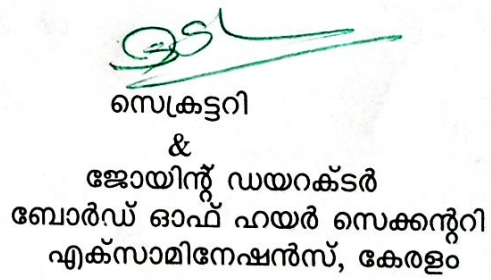 സെക്രട്ടറി
&
ജോയിന്റ് ഡയറക്ടർ
ബോർഡ് ഓഫ് ഹയർ സെക്കന്ററി
എക്സാമിനേഷൻസ്, കേരളം